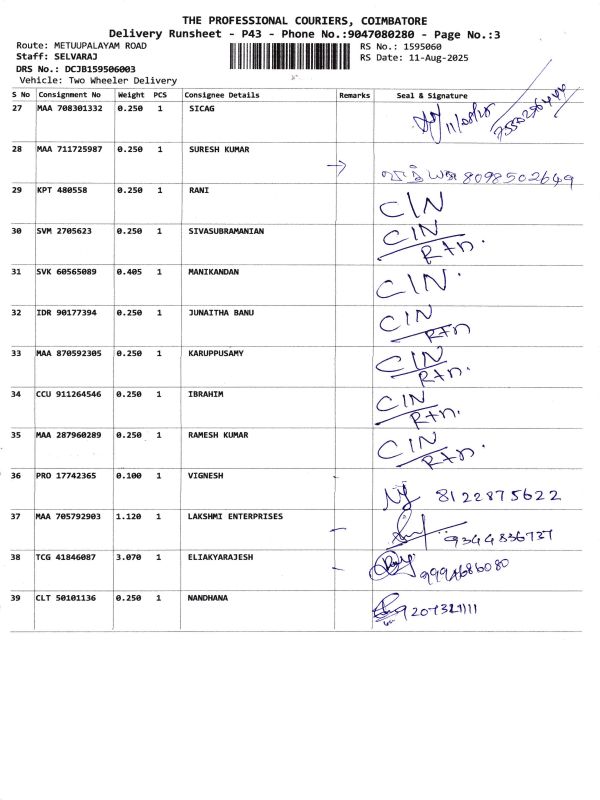 THE PROFESSIONAL COURIERS, COIMBATORE
Delivery Runsheet - P43 - Phone No.:9047080280 - Page No.:3
Route: METUUPALAYAM ROAD RS No.: 1595060
Staff: SELVARAJ RS Date: 11-Aug-2025
DRS No.: DCJB159506003
Vehicle: Two Wheeler Delivery
S No Consignment No Weight PCS Consignee Details Remarks Seal & Signature
27 MAA 708301332 0.250 1 SICAG 11/08/25
28 MAA 711725987 0.250 1 SURESH KUMAR 8098502649
29 KPT 480558 0.250 1 RANI C/N
30 SVM 2705623 0.250 1 SIVASUBRAMANIAN C/N Rtn.
31 SVK 60565089 0.405 1 MANIKANDAN C/N.
32 IDR 90177394 0.250 1 JUNAITHA BANU C/N Rtn
33 MAA 870592305 0.250 1 KARUPPUSAMY C/N Rtn.
34 CCU 911264546 0.250 1 IBRAHIM C/N Rtn.
35 MAA 287960289 0.250 1 RAMESH KUMAR C/N Rtn.
36 PRO 17742365 0.100 1 VIGNESH 8122875622
37 MAA 705792903 1.120 1 LAKSHMI ENTERPRISES 9344836737
38 TCG 41846087 3.070 1 ELIAKYARAJESH 9994686080
39 CLT 50101136 0.250 1 NANDHANA 9207321111